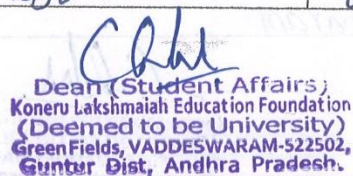 Dean (Student Affairs)
Koneru Lakshmaiah Education Foundation
(Deemed to be University)
Green Fields, VADDESWARAM-522502,
Guntur Dist, Andhra Pradesh.